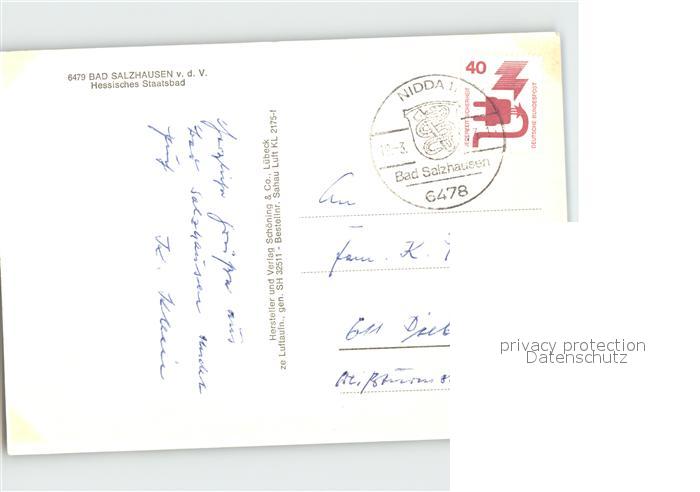 6479 BAD SALZHAUSEN v. d. V.
Hessisches Staatsbad
Herzliche Grüße aus
Bad Salzhausen sendet
Hersteller und Verlag Schöning & Co., Lübeck
ze Luftaufn., gen. SH 32511 - Bestellnr. Sahau Luft KL 2175-f
NIDDA 1
Bad Salzhausen
6478
40
JEDERZEIT SICHERHEIT
DEUTSCHE BUNDESPOST
An
Fam. K.
611 Dieb
privacy protection
Datenschutz